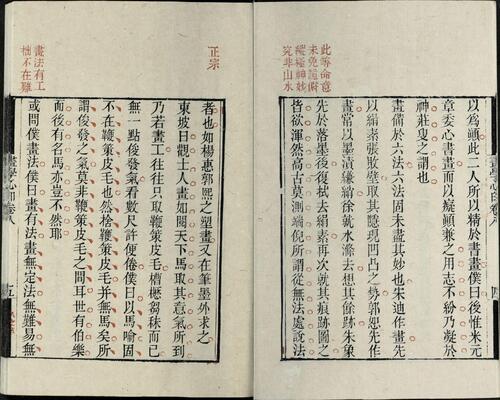 此等命意
未免詭
縱極神妙
究非山水
以爲顛此二人所以精於書畫僕曰後惟米元
章委心書畫而以癡顛兼之用志不紛乃凝於
神莊叟之謂也
畫備於六法六法固未盡其妙也宋迪作畫先
以絹素張敗壁取其隱現凹凸之勢郭恕先作
畫常以墨漬縑綃徐就水滌去想其餘跡朱象
先於落墨後復拭去絹素再次就其痕跡圖之
皆欲渾然高古莫測端倪所謂從無法處說法
正宗
畫法有工
拙不在難
者也如楊惠郭熙之塑畫又在筆墨外求之
東坡曰觀士人畫如閱天下馬取其意氣所到
乃若畫工往往只取鞭策皮毛槽櫪芻秣而已
無一點俊發氣看數尺許便倦僕曰以馬喻固
不在鞭策皮毛也然捨鞭策皮毛並無馬矣所
謂俊發之氣莫非鞭策皮毛之間耳世有伯樂
而後有名馬亦豈不然耶
或問僕畫法僕曰畫有法畫無定法無難易無
畫學心印卷八
五